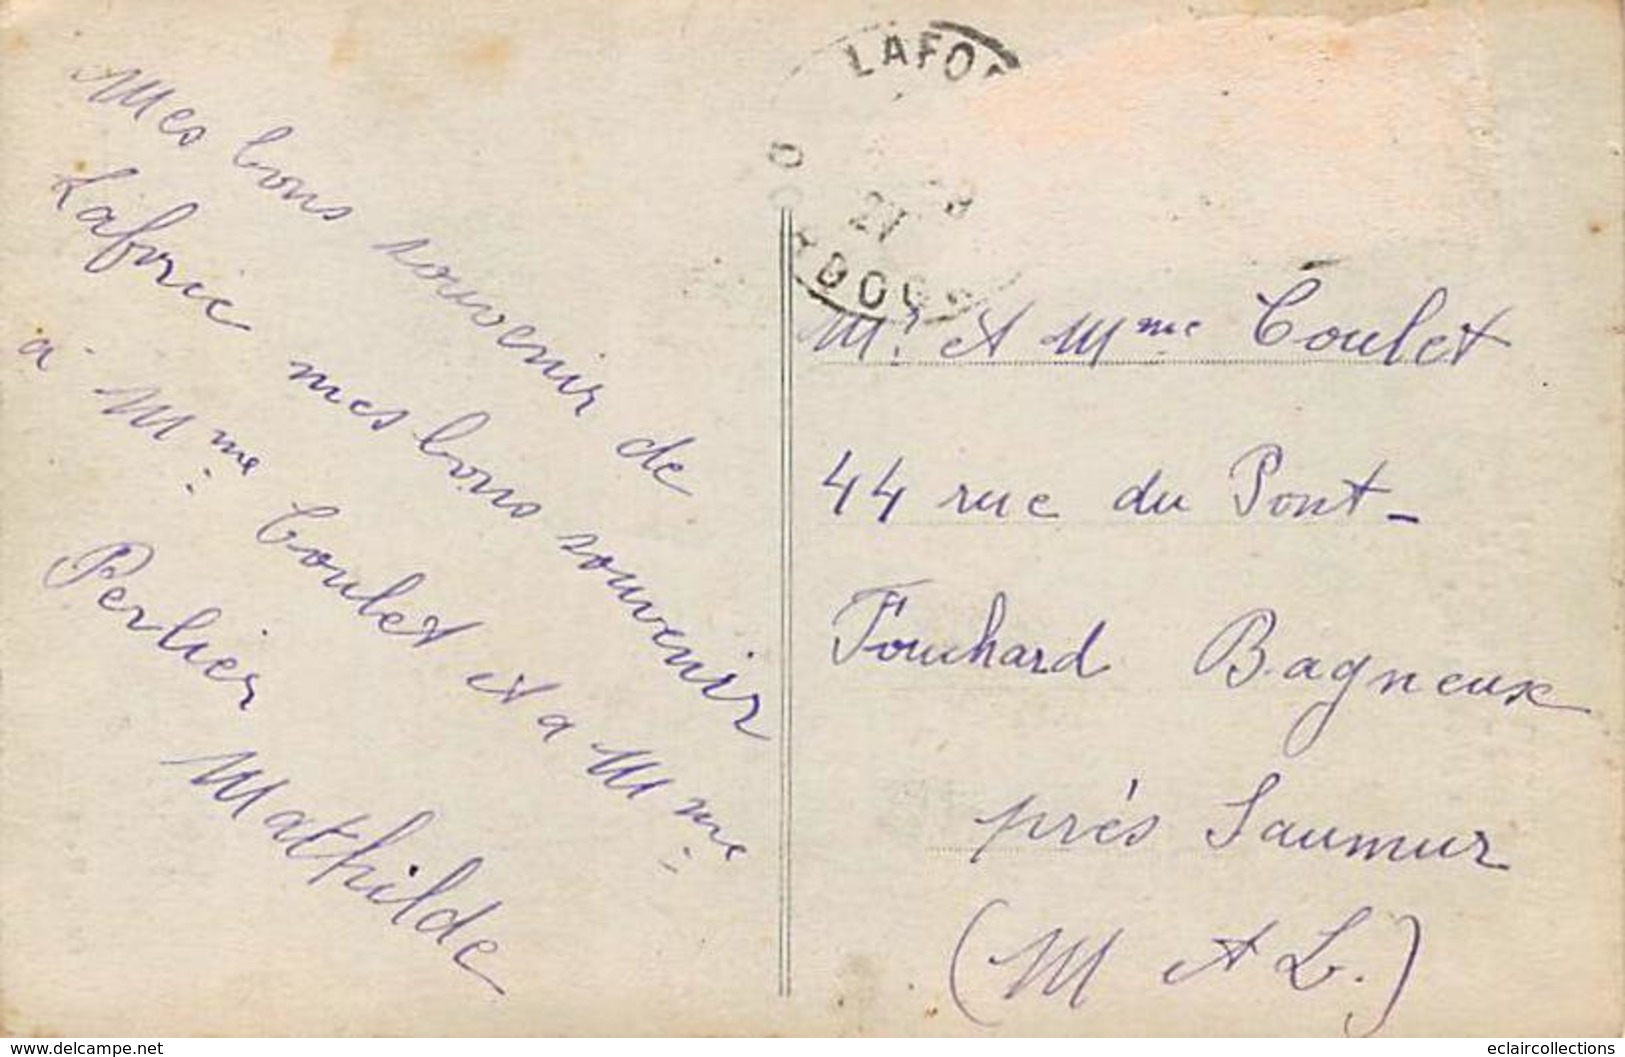 Mes bons souvenir de
Laforie mes bons souvenir
à Mme Coulet et a Mme
Perlier
Mathilde
LAFO
21
DOG
Mr et Mme Coulet
44 rue du Pont-
Fouchard Bagneux
près Saumur
(M et L.)
www.delcampe.net
eclaircollections